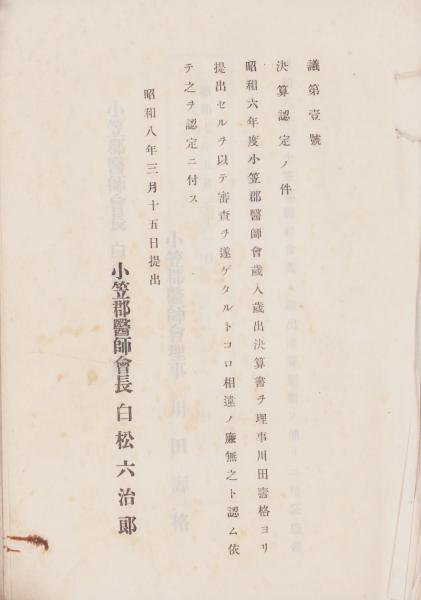 議第壹號
決算認定ノ件
昭和六年度小笠郡醫師會歲入歲出決算書ヲ理事川田壽格ヨリ
提出セルヲ以テ審査ヲ遂ゲタルトコロ相違ノ廉無之ト認ム依
テ之ヲ認定ニ付ス
昭和八年三月十五日提出
小笠郡醫師會長白松六治郞